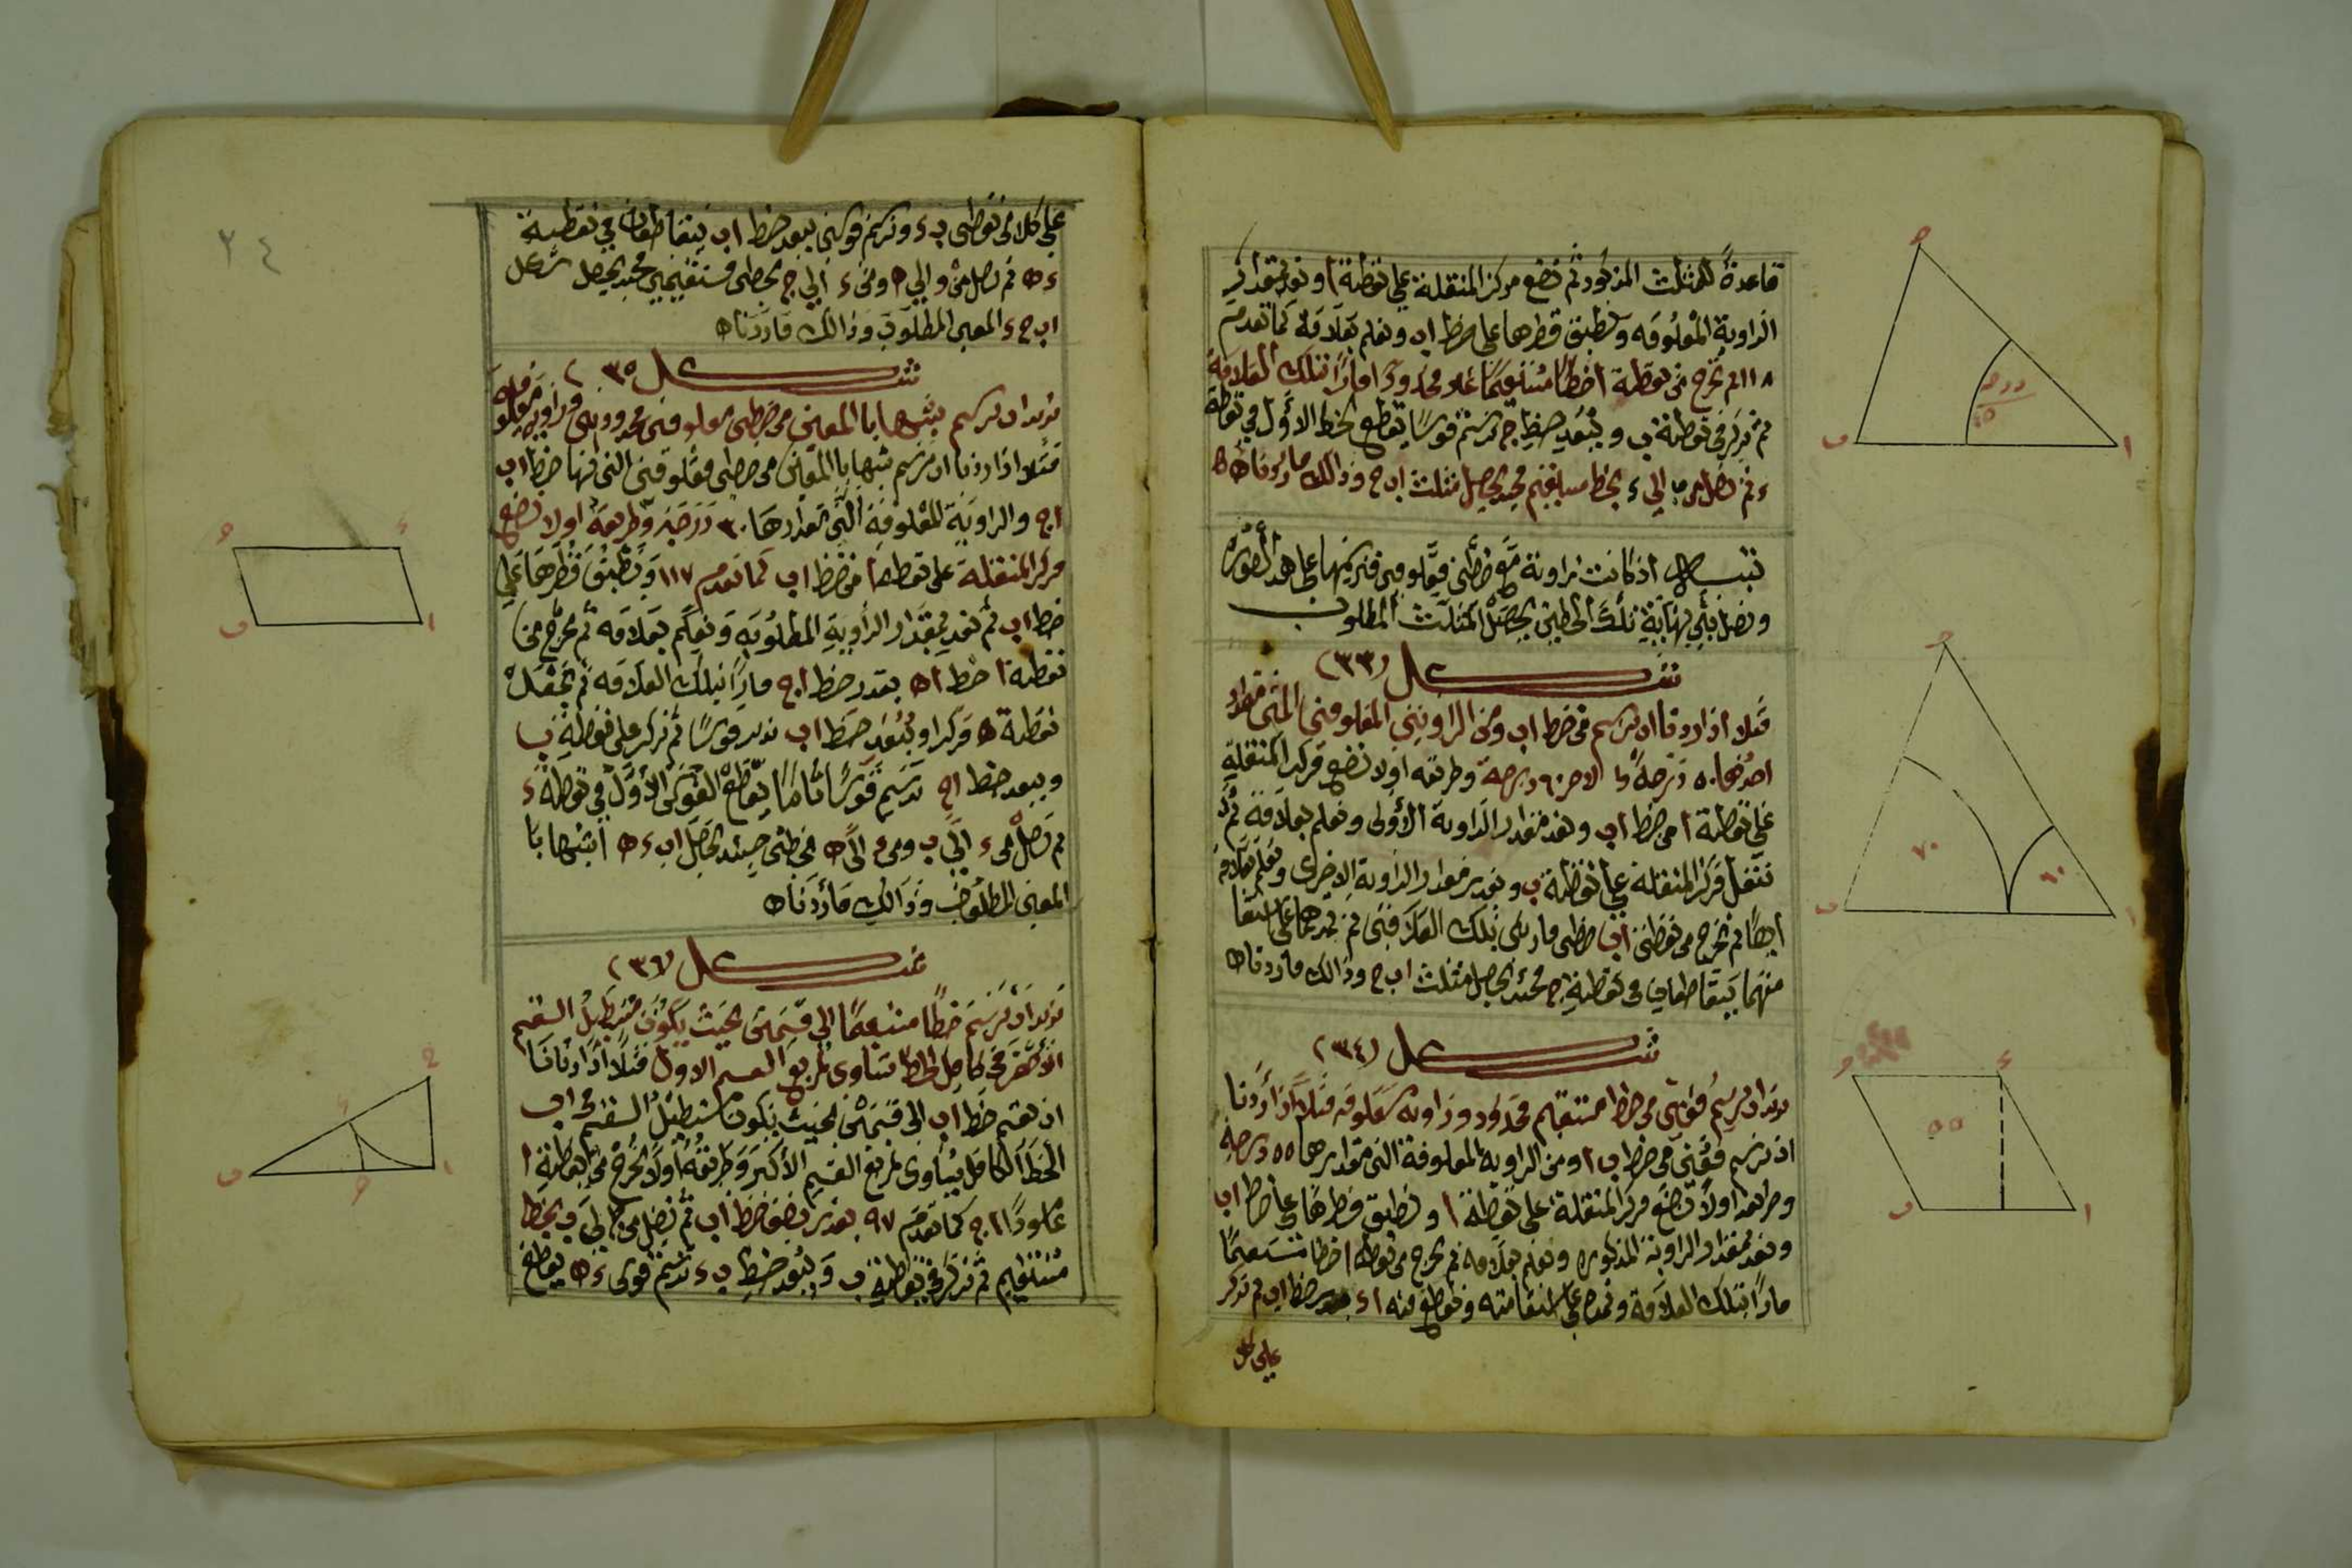 قاعدةً للمثلث المذكور ثم نضع مركز المنقلة على نقطة ا ونعد بمقدار
الزاوية المعلومه ونطبق قطرها على خط اب ونعلم بعلامة كما تقدم
١١٨ ثم نخرج من نقطة ا خطًا مستقيمًا غير محدودا مارًا بتلك العلامة
ثم نركز في نقطة ب وببُعد خط ج نرسم قوسًا يقطع الخط الاول في نقطة
ء ثم نصل من ب الى ء بخط مستقيم فحينئذ يحصل مثلث اب ج وذالك ما اردناه
تنبيه اذ كانت زاوية مع خطين معلومين فنرسمها على هذه الصورة
ونصل بين نهاية تلك الخطين يحصل المثلث المطلوب
شكل (٣٣)
مثلا اذا اردنا ان نرسم من خط اب ومن الزاويتين المعلومتين التي مقدار
احدهما ٥٠ درجةً والاخر ٦٠ درجة وطريقه اولا نضع مركز المنقلة
على نقطة ا من خط اب ونعد مقدار الزاوية الأولى ونعلم بعلامة ثم
ننقل مركز المنقلة على نقطة ب ونعد بمقدار الزاوية الاخرى ونعلم بعلامة
ايضًا ثم نخرج من نقطتى اب خطين مارين بتلك العلامتين ثم نمدهما على استقا
منهما يتقاطعان في نقطة ج فحينئذ يحصل مثلث اب ج وذالك ما اردناه
شكل (٣٤)
نريد ان نرسم معين من خط مستقيم محدود وزاوية معلومه مثلًا اذا أردنا
ان نرسم معين من خط اب ومن الزاوية المعلومة التى مقدارها ٥٥ درجة
وطريقه اولًا نضع مركز المنقلة على نقطة ا ونطبق قطرها على خط اب
ونعد بمقدار الزاوية المذكوره ونعلم بعلامه ثم نخرج من نقطة ا خطا مستقيمًا
مارًا بتلك العلامة ونمده على استقامته ونقطع منه اء بقدر خط اب ثم نركز
على كل
ج
ا
ب
ج
٧٠
٦٠
ا
ب
ج
ء
٥٥
ا
ب
٢٤
على كلا من نقطتى ب ء ونرسم قوسين ببعد خط اب يتقاطعان في نقطة
ءه ثم نصل من و الى ه ومن ء الى ج بخطين مستقيمين فحينئذ يحصل شكل
اب ج ء المعين المطلوب وذالك ما اردناه
شكل (٣٥)
نريد ان نرسم شبيها بالمعين من خطين معلومين محدودين وزاوية معلومة
مثلا اذا اردنا ان نرسم شبيها بالمعين من خطين معلومين التى منها خط اب
اج والزاوية المعلومة التى مقدارها ٣٠ درجة وطريقه اولا نضع
مركز المنقلة على نقطه ا من خط اب كما تقدم ١١٧ ونطبق قطرها على
خط اب ثم نعد بمقدار الزاوية المطلوبه ونعلم بعلامه ثم نخرج من
نقطه ا خط اه بقدر خط اج مارًا بتلك العلامه ثم نجعل
نقطة ه مركزا وببُعد خط اب ندير قوسًا ثم نركز على نقطة ب
وببعد خط اج نرسم قوسًا تامًا يقاطع القوس الأول في نقطة ء
ثم نصل من ء الى ب ومن ء الى ه بخطين حينئذ يحصل اب ء ه الشبيها با
المعين المطلوب وذالك ما أردناه
شكل (٣٦)
نريد ان نرسم خطًا مستقيمًا الى قسمين بحيث يكون مستطيل القسم
الأصغر في كامل الخط يساوى مربع القسم الاول مثلًا اذا اردنا
ان نقسم خط اب الى قسمين بحيث يكون مستطيل القسم في اب
الخط الكامل يساوى مربع القسم الأكبر وطريقه أولًا نخرج من نقطة ا
عامودًا اج كما تقدم ٩٧ بقدر نصف خط اب ثم نصل من ج الى ب بخط
مستقيم ثم نركز في نقطة ب وببُعد خط ب ء نرسم قوس ء ه يقاطع
ج
ء
ا
ب
ء
ا
ب